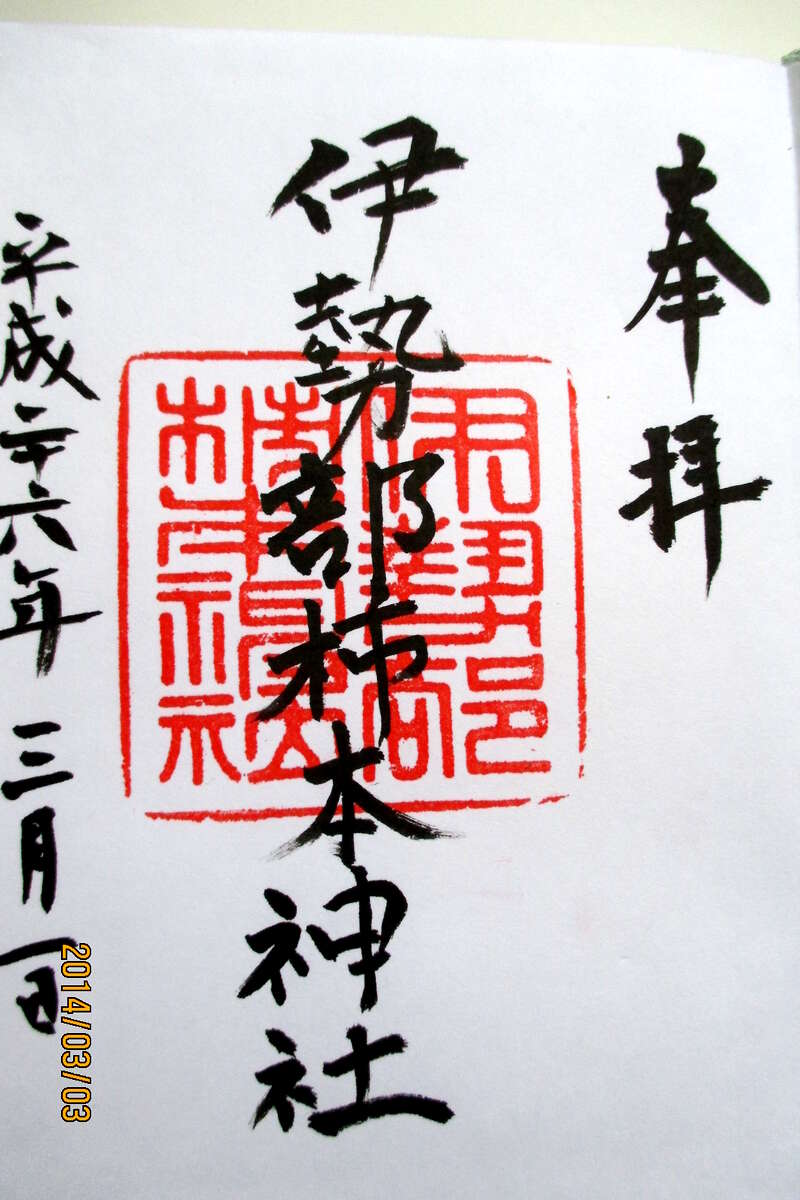 奉拝
伊勢部柿本神社
平成二十六年三月一日
2014/03/03